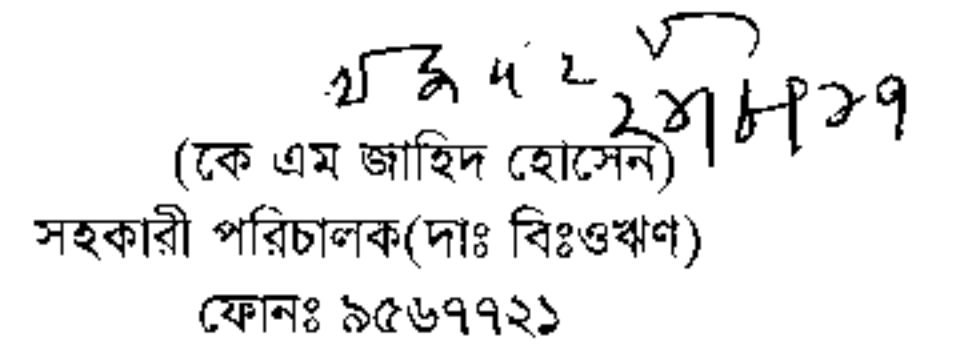 (কে এম জাহিদ হোসেন)
সহকারী পরিচালক(দাঃ বিঃওঋণ)
ফোনঃ ৯৫৬৭৭২১